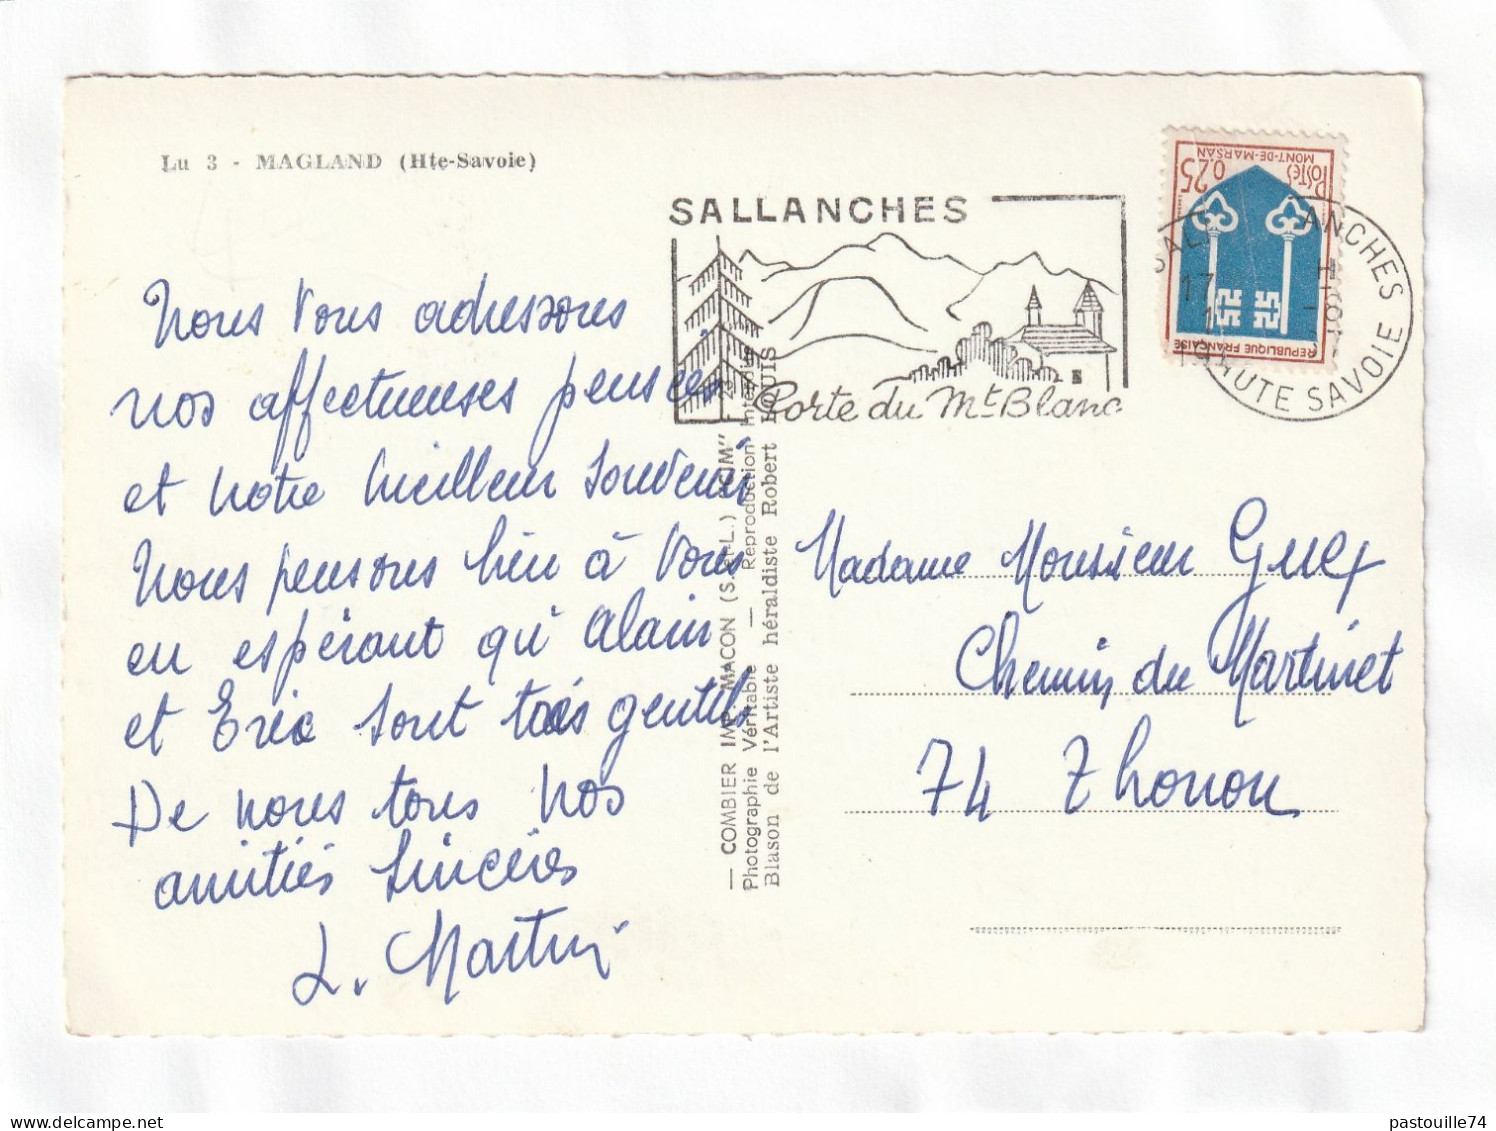 Lu 3 - MAGLAND (Hte-Savoie)
SALLANCHES
Porte du Mt Blanc
POSTES
0,25
MONT-DE-MARSAN
REPUBLIQUE FRANÇAISE
SALLANCHES
17 H
HAUTE SAVOIE
Nous Vous adressons
nos affectueuses pensées
et notre meilleur souvenir
Nous pensons bien à Vous
en espérant qu'Alain
et Eric sont très gentils
De nous tous nos
amitiés sincères
L. Martin
— COMBIER IMP. MACON (S.-et-L.) "CIM"
Photographie Véritable — Reproduction Interdite
Blason de l'Artiste héraldiste Robert LOUIS
Madame Monsieur Guex
Chemin du Martinet
74 Thonon
pastouille74